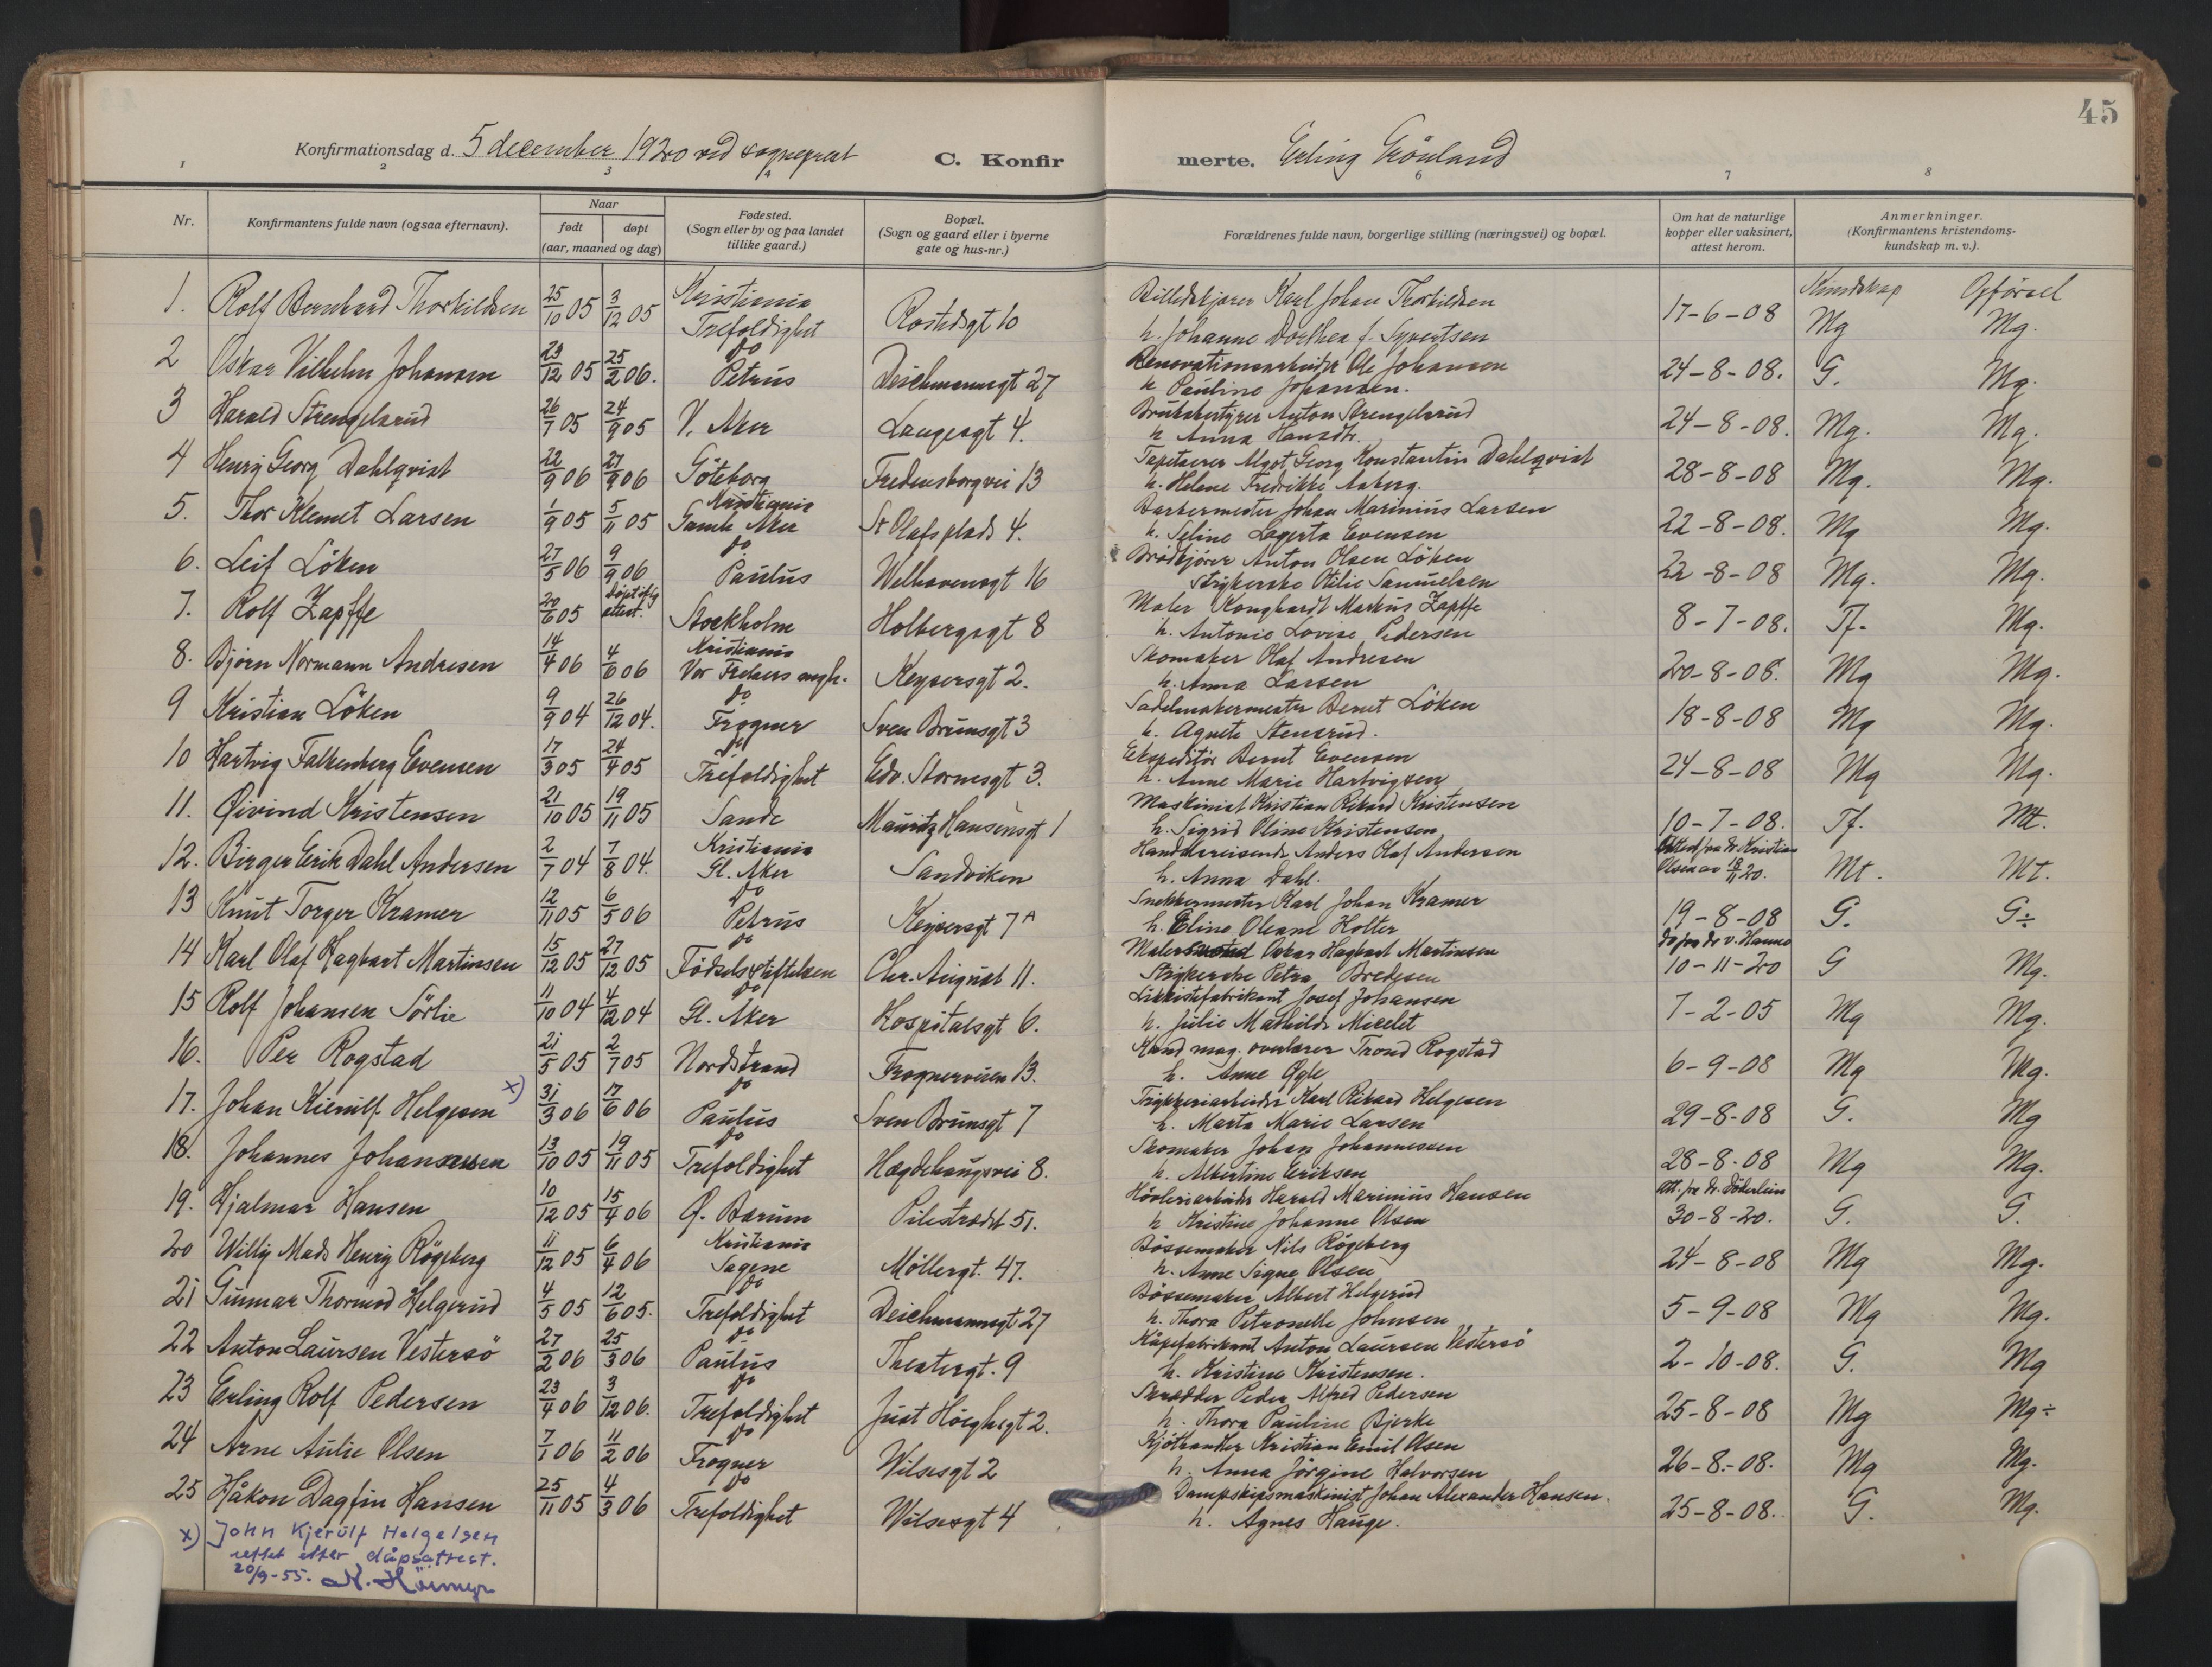 45
Konfirmationsdag d. 5 december 1920 ved sogneprest C. Konfirmerte. Erling Grönland
1 2 3 4 6 7 8
Nr. Konfirmantens fulde navn (ogsaa efternavn). Naar født døpt (aar, maaned og dag) Fødested. (Sogn eller by og paa landet tillike gaard.) Bopæl. (Sogn og gaard eller i byerne gate og hus-nr.) Forældrenes fulde navn, borgerlige stilling (næringsvei) og bopæl. Om hat de naturlige kopper eller vaksinert, attest herom. Anmerkninger. (Konfirmantens kristendomskundskap m. v.).
Kundskap Opförsel
1. Rolf Bernhard Thorkildsen 25/10 05 3/12 05 Kristiania Trefoldighet Rostedsgt 10 Billedskjærer Karl Johan Thorkildsen h. Johanne Dorthea f. Syvertsen 17-6-08 Mg Mg.
2 Oskar Vilhelm Johansen 23/12 05 25/2 06. do Petrus Deichmannsgt 27 Renovationsarbeider Ole Johansen h Pauline Johansen. 24-8-08. G. Mg.
3 Harald Strengelsrud 26/7 05 24/9 05 V. Aker Langesgt 4. Bruksbestyrer Anton Strengelsrud h Anna Hansdtr. 24-8-08. Mg. Mg.
4 Henry Georg Dahlqvist 22/9 06 27/9 06 Göteborg Fredensborgvei 13 Tapetserer Algot Georg Konstantin Dahlqvist h. Helene Fredrikke Aaberg. 28-8-08 Mg. Mg.
5. Thor Klemet Larsen 1/9 05 5/11 05 Kristiania Gamle Aker St Olafs plads 4. Barbermester Johan Marinius Larsen h. Seline Lagerta Evensen 22-8-08. Mg Mg.
6. Leif Löken 27/5 06 9/9 06 do Paulus Welhavensgt 16 Brödkjörer Anton Olsen Löken strykerske Otilie Samuelsen 22-8-08 Mg. Mg.
7. Rolf Zapffe 20/6 05 döpt iflg attest. Stockholm Holbergsgt 8 Maler Konghardt Markus Zapffe h. Antonie Lovise Pedersen 8-7-08. Tf. Mg.
8. Björn Normann Andresen 14/4 06 4/6 06 Kristiania Vor Frelsers mgh. Keysersgt 2. Skomaker Olaf Andresen h. Anna Larsen 20-8-08. Mg Mg.
9 Kristian Löken 9/9 04 26/12 04. do Frogner Sven Brunsgt 3 Sadelmakermester Bernt Löken h. Agnete Stensrud. 18-8-08 Mg Mg.
10 Hartvig Falkenberg Evensen 17/3 05 24/4 05 do Trefoldighet Edv. Stormsgt 3. Ekspeditör Bernt Evensen h. Anne Marie Hartvigsen 24-8-08 Mg Mg.
11. Øivind Kristensen 21/10 05 19/11 05 Sande Mauritz Hansensgt 1 Maskinist Kristian Rikard Kristensen h. Sigrid Oline Kristensen 10-7-08. Tf. Mt.
12. Birger Erik Dahl Andersen 2/7 04 7/8 04. Kristiania Gl. Aker Sandviken Handelsreisende Anders Olaf Andersen h. Anna Dahl. Attest fra dr. Kristian Olsen av 18/11 20. Mt. Mt.
13 Knut Torger Kramer 12/11 05 6/5 06 do Petrus Keysersgt 7A Snekkermester Karl Johan Kramer h. Eline Oleane Holter 19-8-08 G. G÷
14 Karl Olaf Hagbart Martinsen 15/12 05 27/12 05 do Födselsstiftelsen Chr. August 11. Maler Oskar Hagbart Martinsen Strykerske Petra Bredesen do fra dr v. Hanno 10-11-20 G Mg.
15 Rolf Johansen Sörlie 11/10 04 4/12 04 do Gl. Aker Hospitalsgt 6. Likkistefabrikant Josef Johansen h. Julie Mathilde Micelet 7-2-05 Mg Mg.
16. Per Rogstad 21/5 05 2/7 05 Nordstrand Frognerveien 13. Kand mag. overlærer Trond Rogstad h. Anne Ggle 6-9-08 Mg Mg.
17. Johan Kierulf Helgesen x) 31/3 06 17/6 06 do Paulus Sven Brunsgt 7 Trykkeriarbeider Karl Rikard Helgesen h. Marta Marie Larsen 29-8-08 G. Mg
18. Johannes Johannessen 13/10 05 19/11 05 do Trefoldighet Hægdehaugsvei 8. Skomaker Johan Johannessen h. Albertine Eriksen 28-8-08 Mg Mg.
19. Hjalmar Hansen 10/12 05 15/4 06 Ø. Bærum Pilestrædet 51. Hövleriarbeider Harald Marinius Hansen h Kristine Johanne Olsen Att. fra dr. Döderlein 30-8-20. G. G.
20 Willy Mads Henry Rögeberg 11/12 05 6/4 06 Kristiania Sagene Möllergt. 47. Bössemaker Nils Rögeberg h. Anne Signe Olsen 24-8-08 Mg Mg.
21 Gunnar Thormod Helgerud 4/5 05 12/6 05. do Trefoldighet Deichmannsgt 27 Bössemaker Albert Helgerud h. Thora Petronelle Johnsen 5-9-08 Mg Mg.
22 Anton Laursen Vestersö 27/2 06 25/3 06 do Paulus Theatergt. 9 Kåpefabrikant Anton Laursen Vestersö h. Kristine Kristensen. 2-10-08. G. Mg
23 Erling Rolf Pedersen 23/4 06 3/12 06. do Trefoldighet Just Höeghsgt 2. Skrædder Peder Alfred Pedersen h. Thora Pauline Bjerke 25-8-08 Mg Mg÷
24 Arne Aulie Olsen 7/1 06 11/2 06 do Frogner Wilsesgt 2 Kjöthandler Kristian Emil Olsen h. Anna Jörgine Halvorsen 26-8-08. Mg Mg.
25 Håkon Dagfin Hansen 25/11 05 4/3 06 do Trefoldighet Wilsesgt 4 Dampskipsmaskinist Johan Alexander Hansen. h. Agnes Hauge. 25-8-08. G. Mg.
x) John Kjerulf Helgesen
rettet etter dåpsattest.
20/9-55.